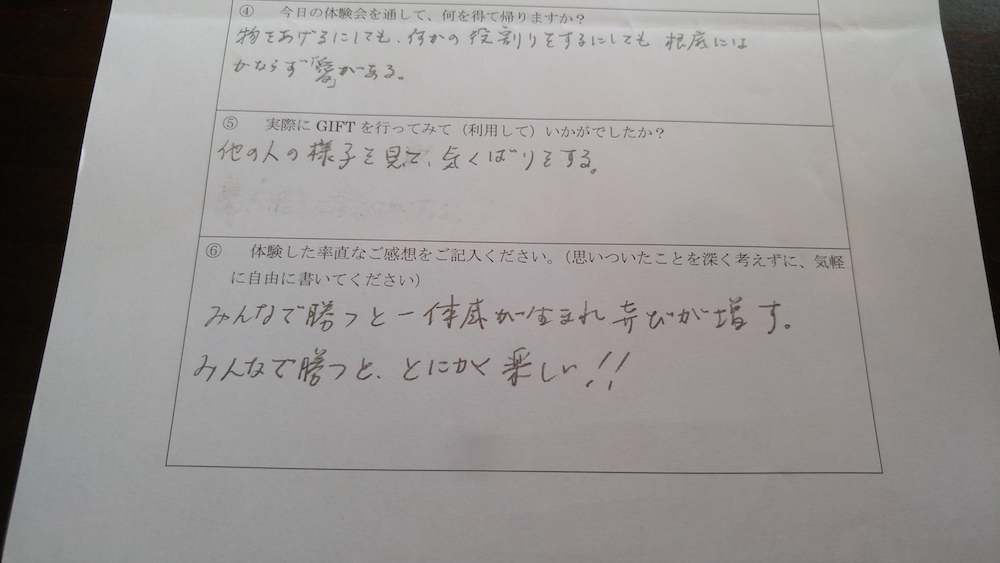 ④ 今日の体験会を通して、何を得て帰りますか？
物をあげるにしても、何かの役割りをするにしても 根底には
かならず「愛」がある。
⑤ 実際に GIFT を行ってみて（利用して）いかがでしたか？
他の人の様子を見て、気くばりをする。
⑥ 体験した率直なご感想をご記入ください。（思いついたことを深く考えずに、気軽
に自由に書いてください）
みんなで勝つと一体感が生まれ 喜びが増す。
みんなで勝つと、とにかく楽しい!!